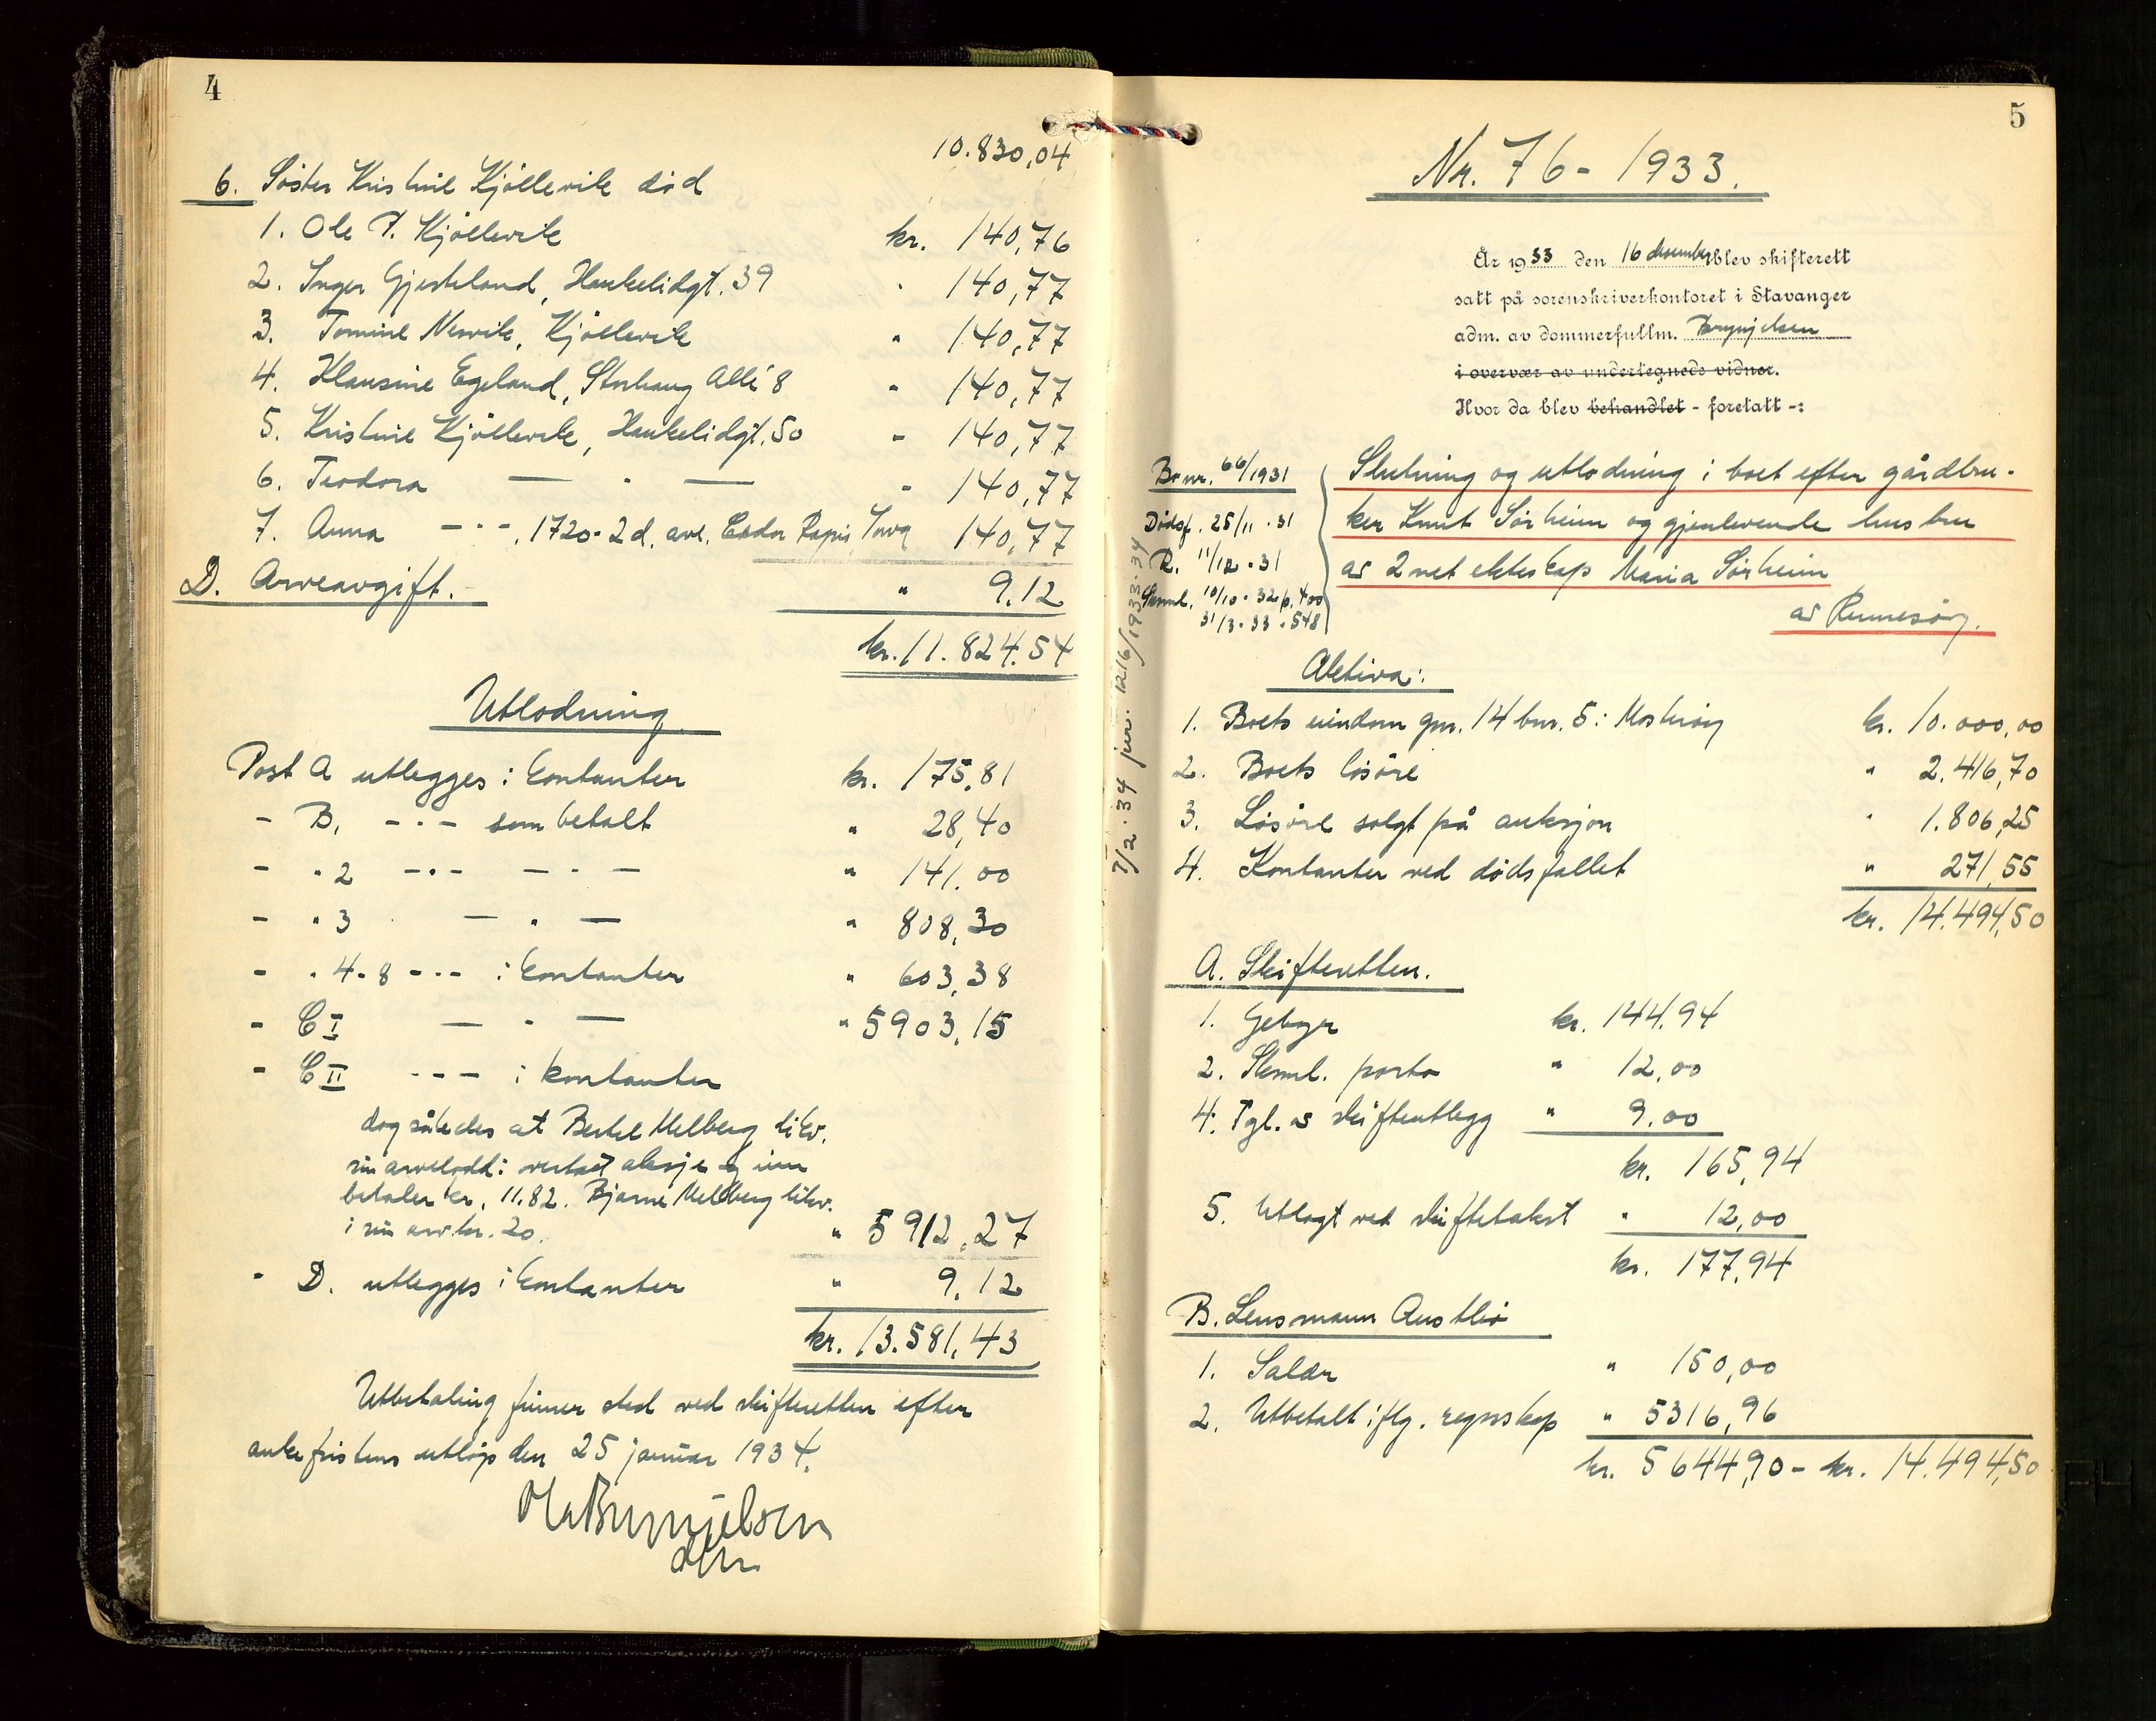 4
10.830,04
6. Søster Kristine Kjöllevik död
1. Ole P. Kjöllevik kr. 140,76
2. Inger Gjesteland, Haukelidgt. 39 " 140,77
3. Tomine Nesvik, Kjöllevik " 140,77
4. Klausine Egeland, Storhaug Allé 8 " 140,77
5. Kristine Kjöllevik, Haukelidgt. 50 " 140,77
6. Teodora — " — " 140,77
7. Anna - " -, 1720 - 2d. ave. Cedar Rapis, Iowa 140,77
D. Arveavgift. " 9.12
kr. 11.824.54
Utlodning
Post A utlegges i kontanter kr. 175,81
- B, - " - som betalt " 28,40
- " 2 - " - - " - " 141.00
- " 3 — " — " 808,30
- " 4-8 - " - i kontanter " 603,38
- C I — " — " 5903,15
- C II - - - i kontanter
dog således at Bertel Melberg likv.
sin arvelodd i overtatt aksje og inn
betaler kr. 11.82. Bjarne Melberg likv.
i sin arv kr. 20. " 5912,27
- D. utlegges i kontanter " 9,12
kr. 13.581,43
Utbetaling finner sted ved skifteretten efter
ankefristens utløp den 25 januar 1934.
Ola Brynjelsen
dfm
5
Nr. 76 - 1933.
År 1933 den 16 desember blev skifterett
satt på sorenskriverkontoret i Stavanger
adm. av dommerfullm. Brynjelsen
i overvær av undertegnede vidner.
Hvor da blev behandlet - foretatt -:
Bo nr. 66/1931
Dødsf. 25/11 - 31
R. 11/12 - 31
Saml. 10/10 - 32 p. 400
31/3 - 33 " 548
7/2 - 34 jnr. 1216/1933-34
Slutning og utlodning i boet efter gårdbru-
ker Knut Sørheim og gjenlevende hustru
av 2net ekteskap Maria Sørheim
av Rennesøy.
Aktiva:
1. Boets eiendom gnr. 14 bnr. 5 i Mosterøy kr. 10.000,00
2. Boets løsøre " 2.416,70
3. Løsøre solgt på auksjon " 1.806,25
4. Kontanter ved dødsfallet " 271,55
kr. 14.494,50
A. Skifteretten.
1. Gebyr kr. 144.94
2. Steml. porto " 12,00
4. Tgl. av skifteutlegg " 9.00
kr. 165,94
5. Utlagt ved skiftetakst " 12,00
kr. 177,94
B. Lensmann Austbø
1. Salær " 150,00
2. Utbetalt iflg. regnskap " 5316,96
kr. 5644,90 - kr. 14.494,50